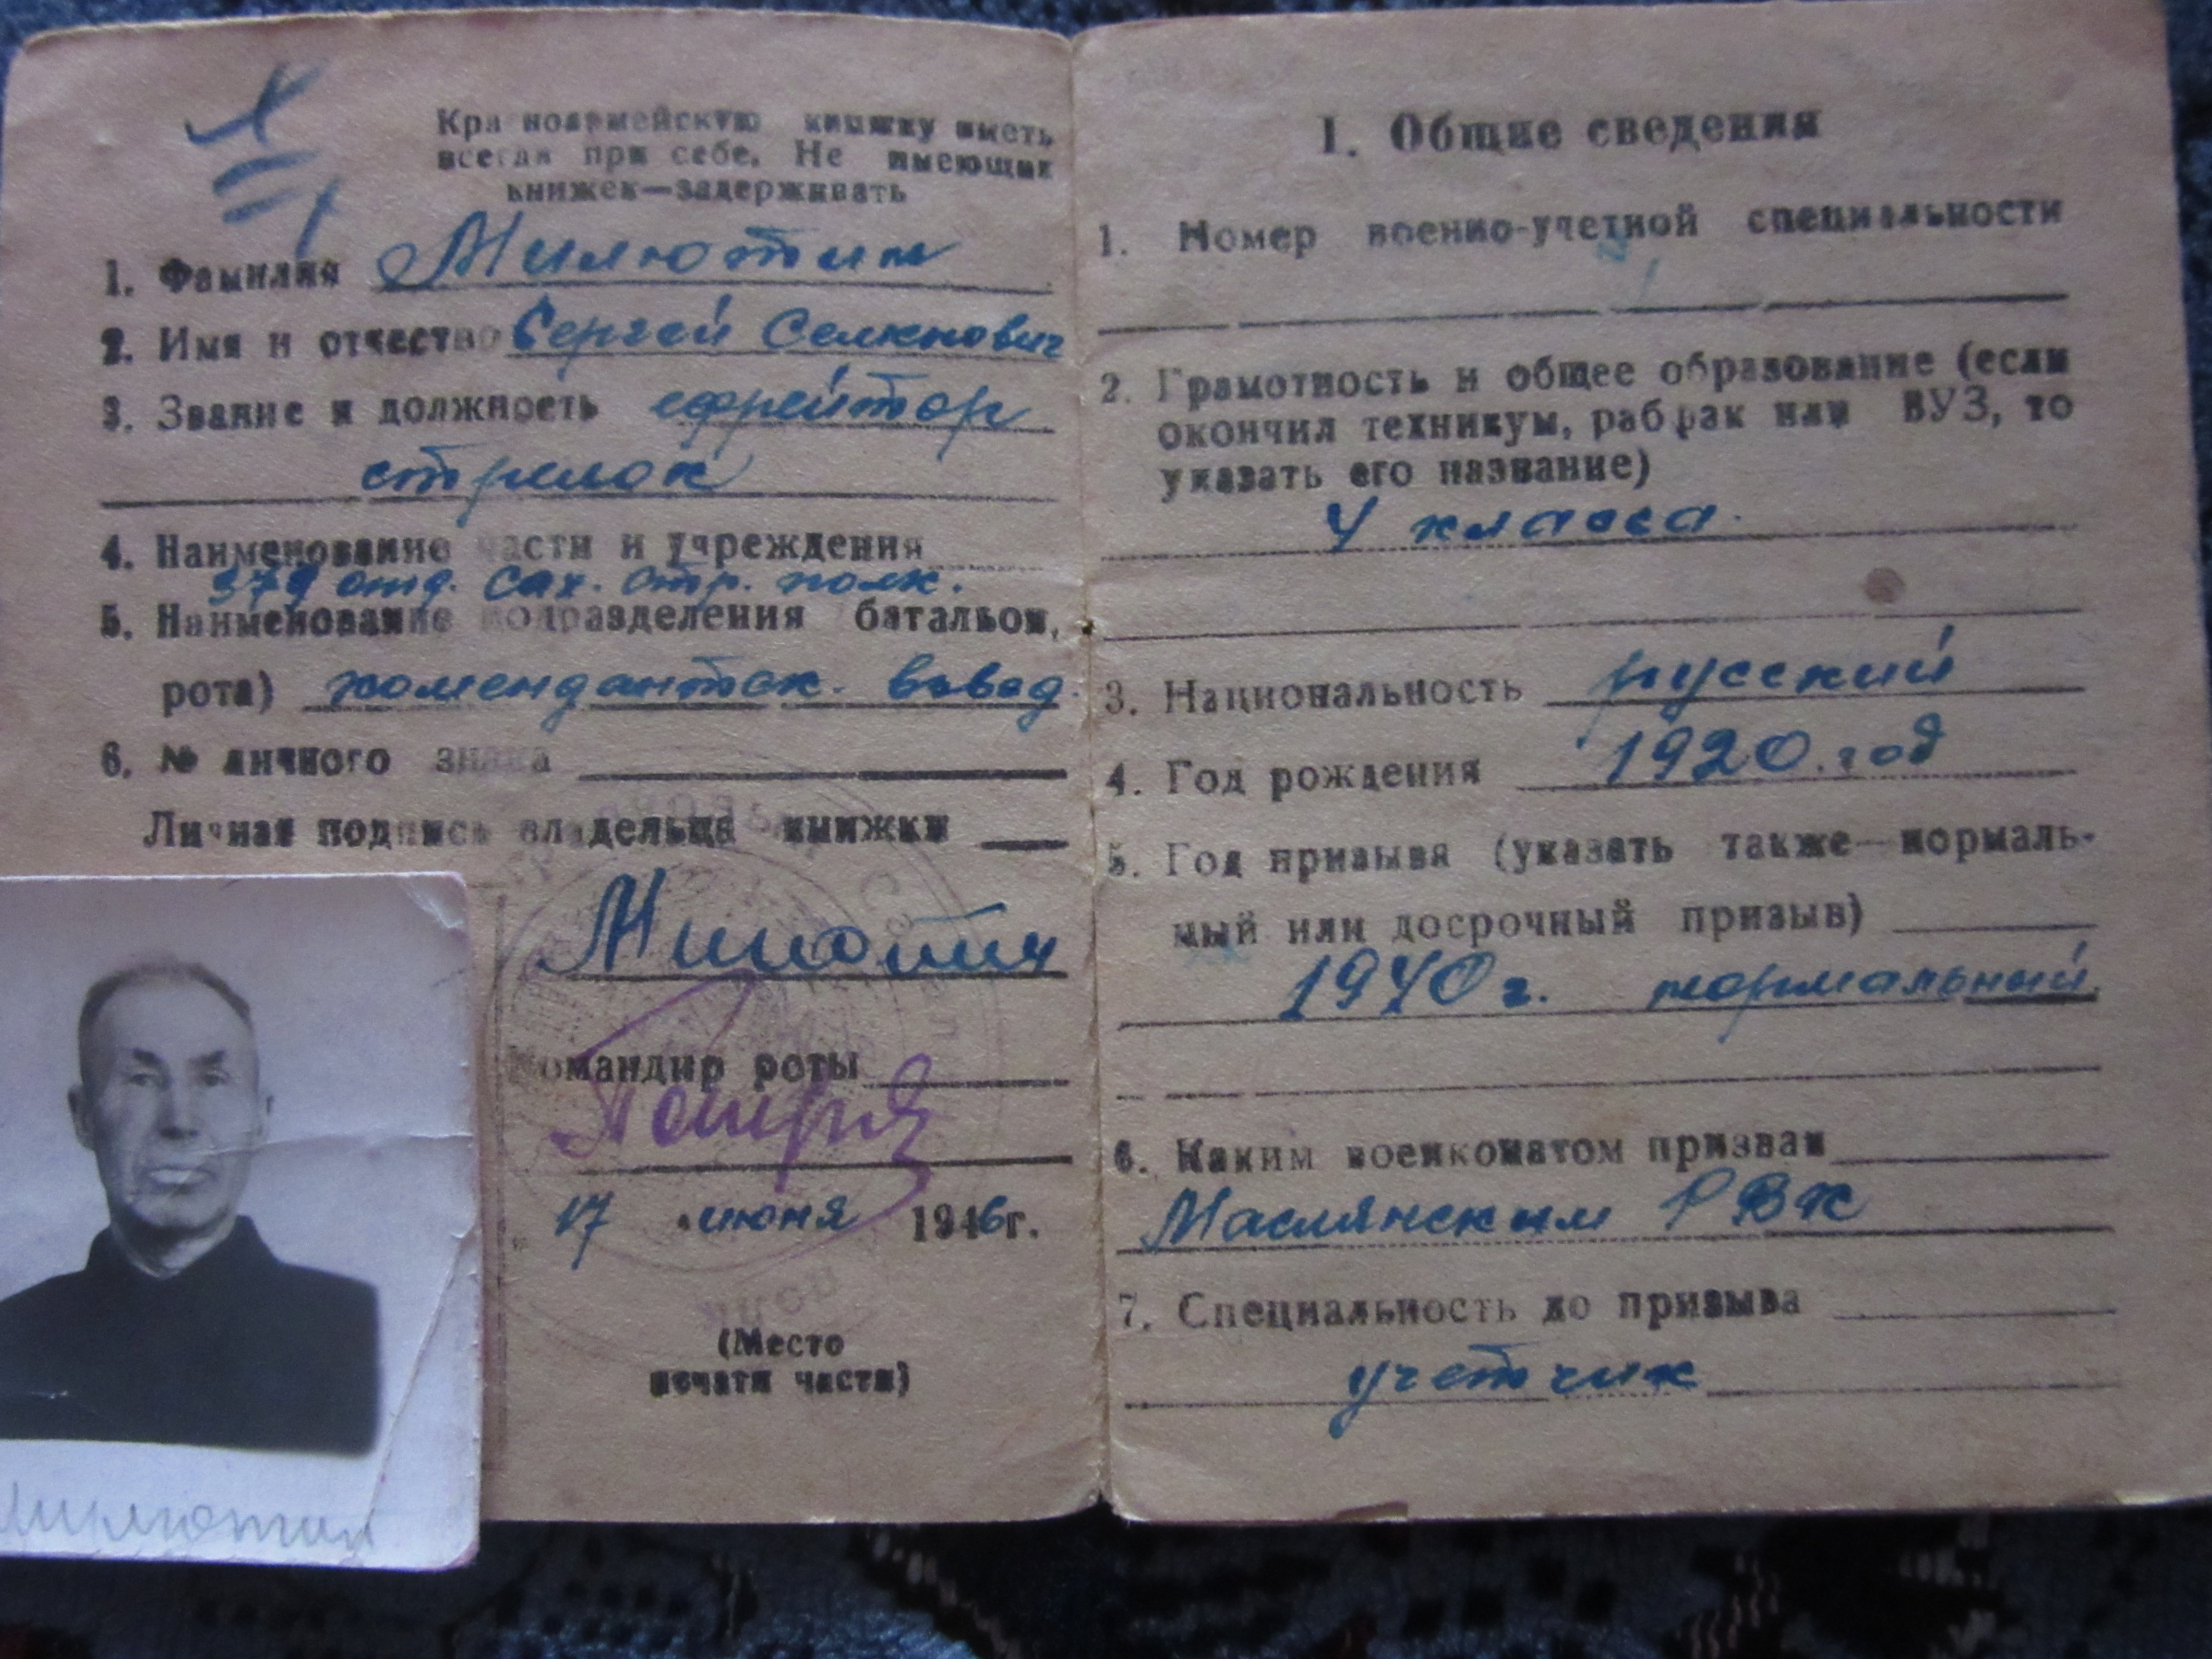 Красноармейскую книжку иметь
всегда при себе. Не имеющих
книжек—задерживать
1. Фамилия Милютин
2. Имя и отчество Сергей Семенович
3. Звание и должность ефрейтор
стрелок
4. Наименование части и учреждения
379 отд. Сах. стр. полк.
5. Наименование подразделения батальон,
рота) комендантск. взвод.
6. № личного знака
Личная подпись владельца книжки
Милютин
Командир роты
17 июня 1946г.
(Место
печати части)
Милютин
I. Общие сведения
1. Номер военно-учетной специальности
2. Грамотность и общее образование (если
окончил техникум, рабфак или ВУЗ, то
указать его название)
4 класса.
3. Национальность русский
4. Год рождения 1920.год
5. Год призыва (указать также—нормаль-
ный или досрочный призыв)
1940г. нормальный.
6. Каким военкоматом призван
Маслянским РВК
7. Специальность до призыва
учетчик